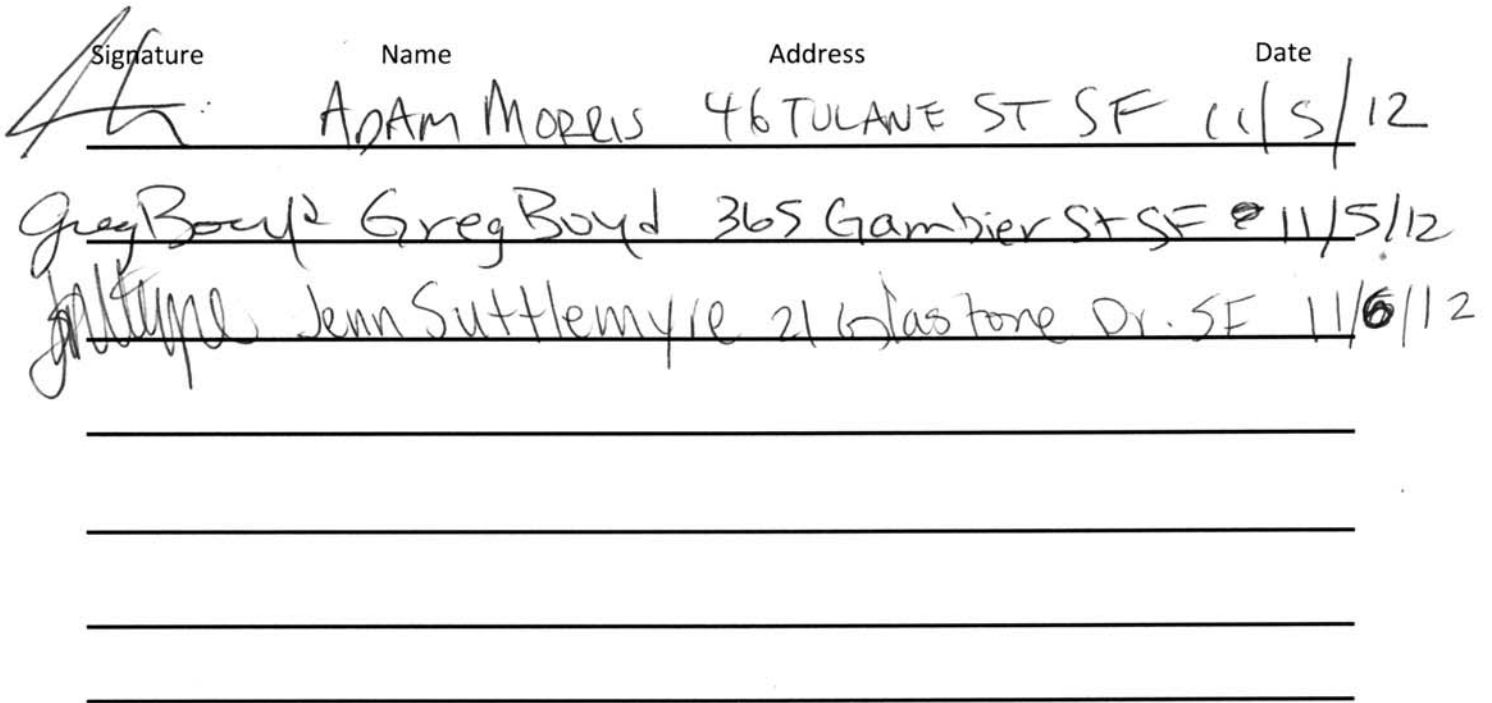 Signature Name Address Date
ADAM MORRIS 46 TULANE ST SF 11/5/12
Greg Boyd Greg Boyd 365 Gambier St SF 11/5/12
Jenn Suttlemyre 21 Glastone Dr. SF 11/6/12